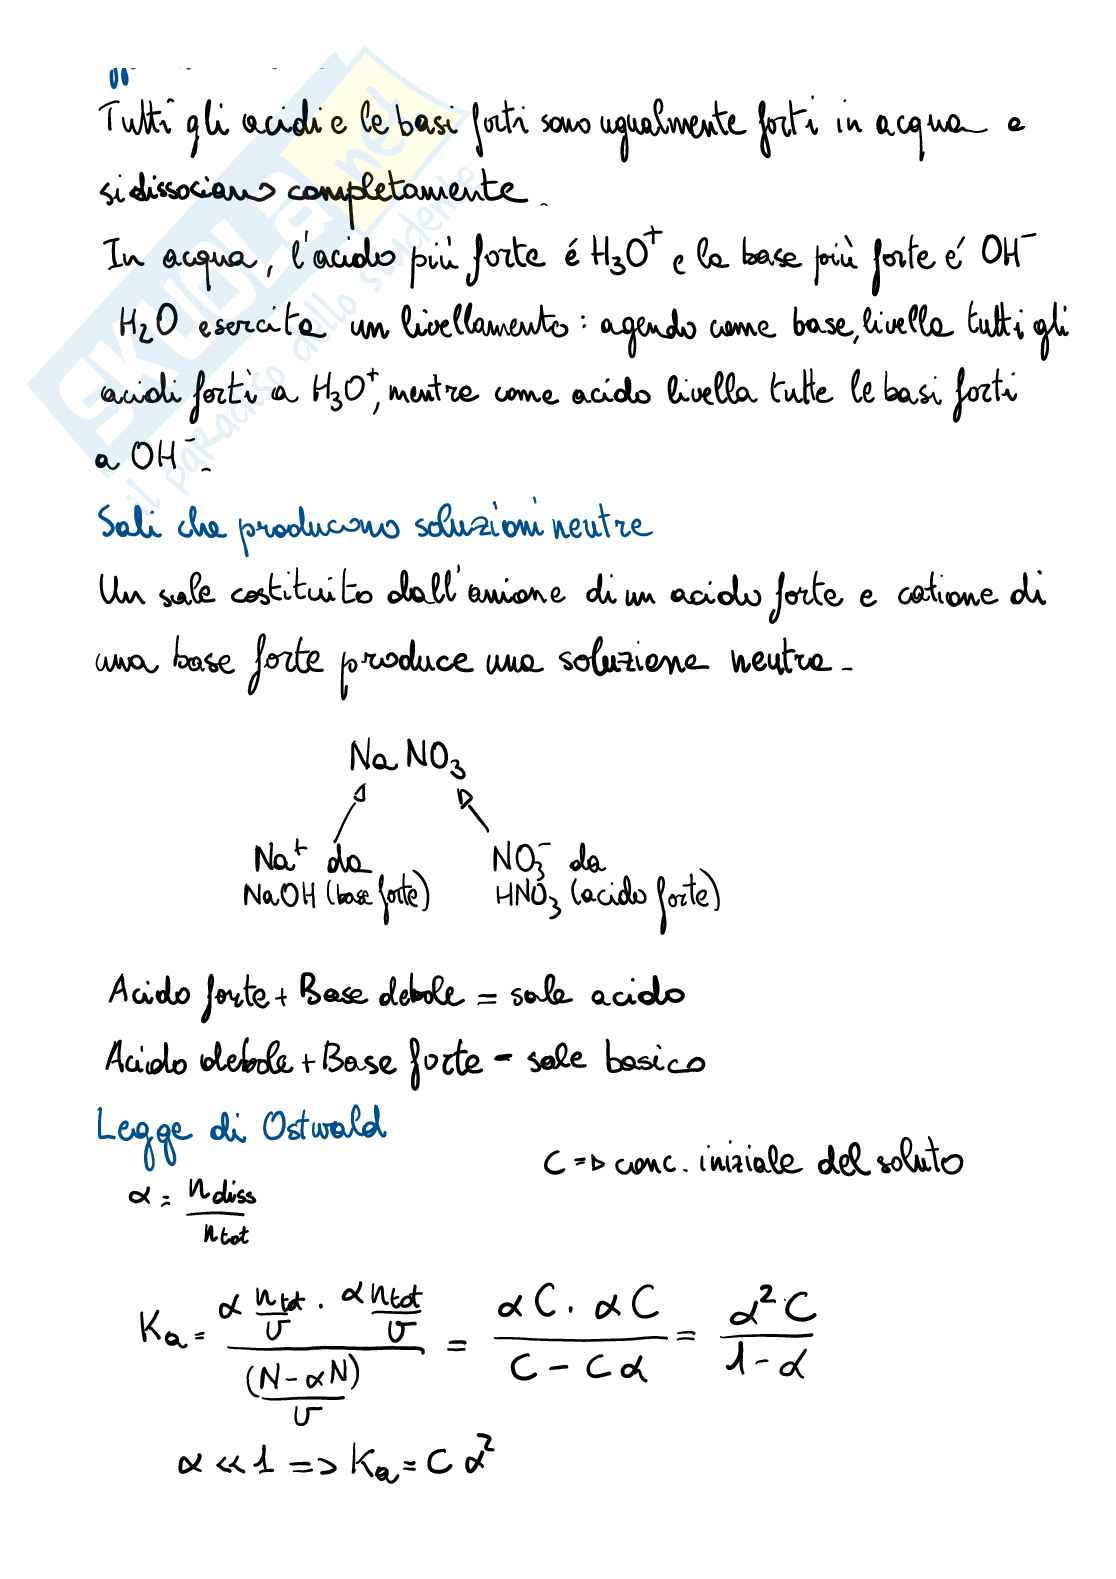 Tutti gli acidi e le basi forti sono ugualmente forti in acqua e
si dissociano completamente.
In acqua, l'acido più forte é H₃O⁺ e la base più forte é OH⁻
H₂O esercita un livellamento: agendo come base, livella tutti gli
acidi forti a H₃O⁺, mentre come acido livella tutte le basi forti
a OH⁻.
Sali che producono soluzioni neutre
Un sale costituito dall'anione di un acido forte e catione di
una base forte produce una soluzione neutra.
NaNO₃
Na⁺ da NO₃⁻ da
NaOH (base forte) HNO₃ (acido forte)
Acido forte + Base debole = sale acido
Acido debole + Base forte = sale basico
Legge di Ostwald
C => conc. iniziale del soluto
α = n diss / n tot
Ka = (α n tot/v · α n tot/v) / ((N - αN)/v) = (αC · αC) / (C - Cα) = α²·C / (1 - α)
α << 1 => Ka = C α²
SKUOLA.net
il paradiso dello studente